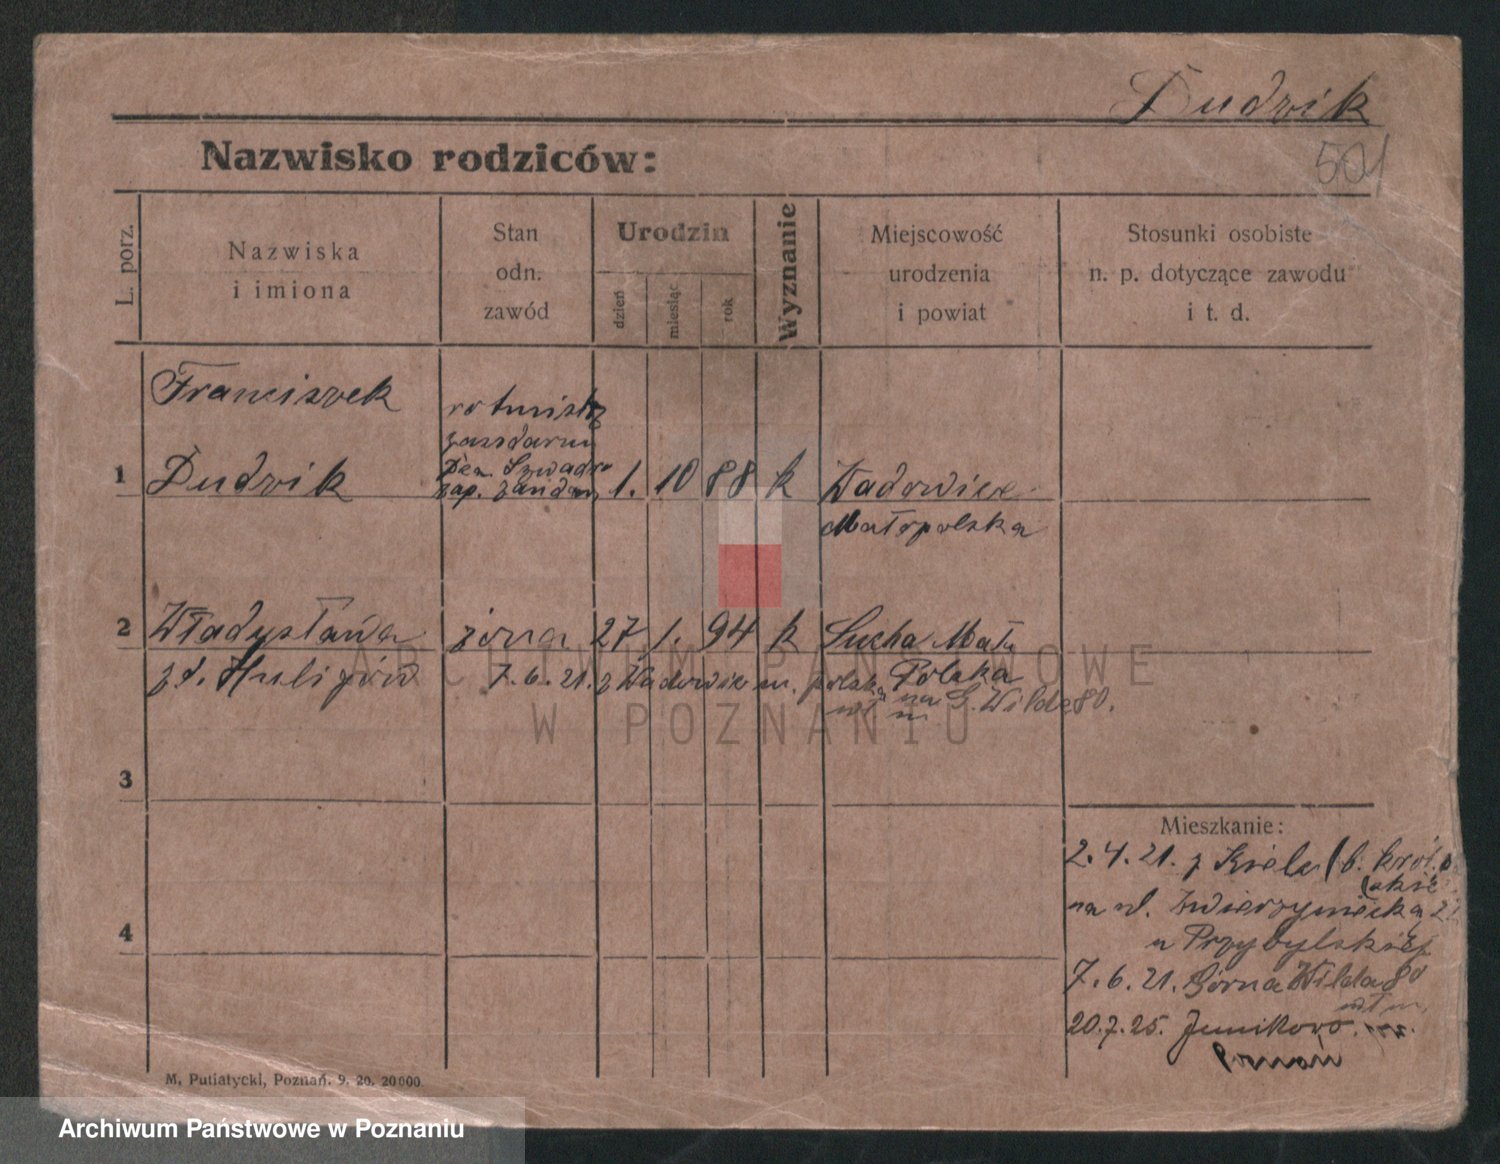 Dudzik
501
Nazwisko rodziców:
L. porz.
Nazwiska
i imiona
Stan
odn.
zawód
Urodzin
dzień
miesiąc
rok
Wyznanie
Miejscowość
urodzenia
i powiat
Stosunki osobiste
n. p. dotyczące zawodu
i t. d.
Franciszek
rotmistrz
żandarm
1 Dudzik
Szwadro
zap. żandarm
1. 10 88 k Wadowice
Małopolska
2 Władysława żona 27 1. 94 k Sucha Mało
Polska
z d. Hulizów 7.6.21. z Wadowic m. polska
na G. Wilda 80.
3
4
Mieszkanie:
2.4.21. z Kielc (b. król.
na ul. Zwierzyniecka
u Przybylskiej
7.6.21. Górna Wilda 80
wł m.
20.7.25. Junikowo
Poznań
M. Putiatycki, Poznań. 9. 20. 20000
ARCHIWUM PAŃSTWOWE
W POZNANIU
Archiwum Państwowe w Poznaniu